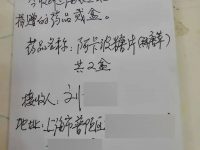 捐赠的药品贰盒。
药品名称：阿卡波糖片
共2盒
接收人：刘
地址：上海市普陀区